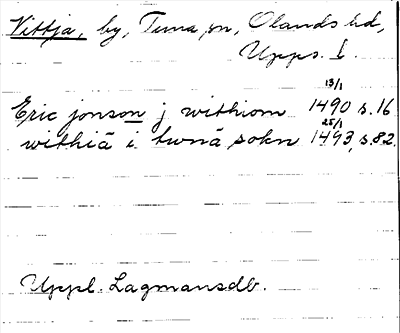 Vittja, by, Tuna sn, Olands hd,
Upps. l.
13/1
Eric jonson j withiom 1490 s. 16
25/1
withiä i twnä sokn 1493, s. 82.
Uppl. Lagmansdb.